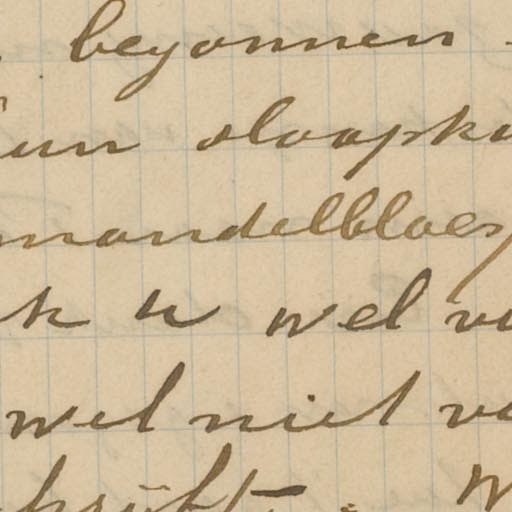 begonnen
un slaapka
mandelbloes
k u wel vo
wel niet va
hrijft. W